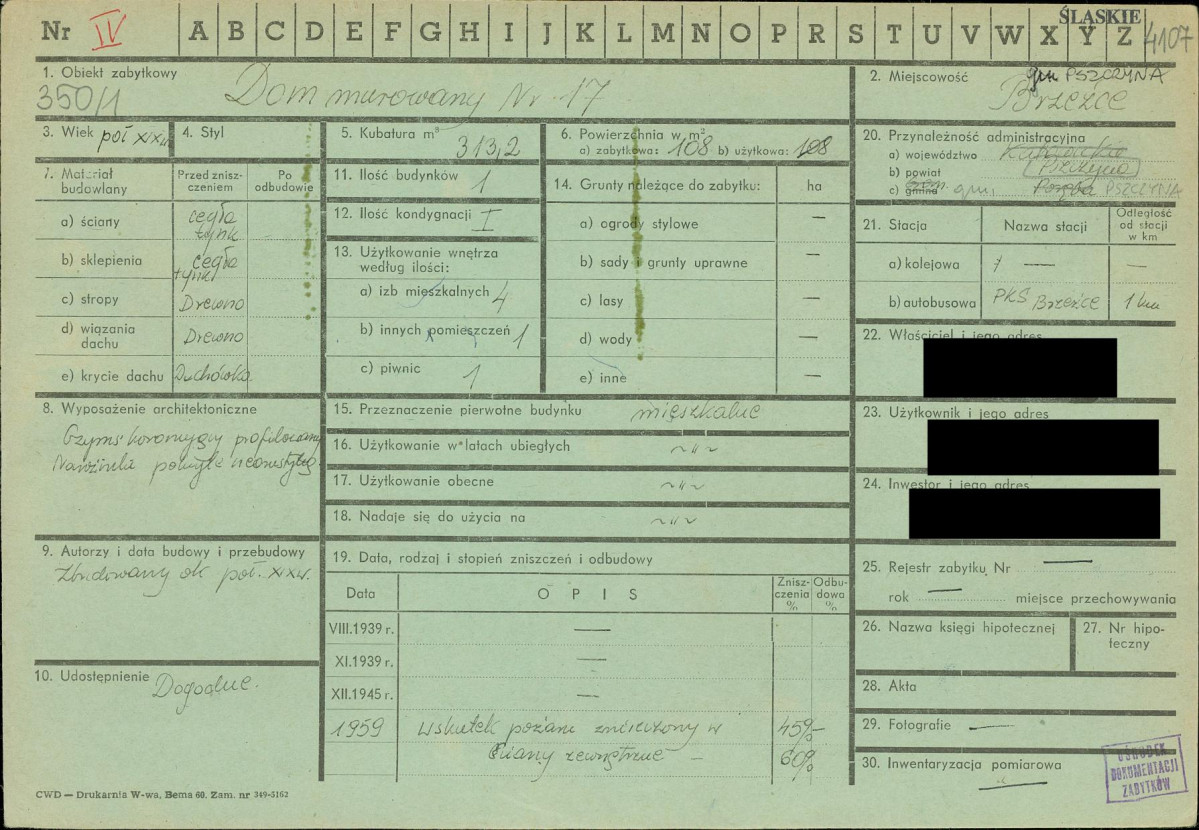 Nr IV A B C D E F G H I J K L M N O P R S T U V W X Y Z
ŚLĄSKIE
4107
1. Obiekt zabytkowy
350/1
Dom murowany Nr 17
2. Miejscowość gm PSZCZYNA
Brzeźce
3. Wiek poł XIX w
4. Styl
5. Kubatura m³
313,2
6. Powierzchnia w m²
a) zabytkowa: 108 b) użytkowa: 108
7. Materiał budowlany
Przed zniszczeniem
Po odbudowie
a) ściany cegła tynk
b) sklepienia cegła tynk
c) stropy Drewno
d) wiązania dachu Drewno
e) krycie dachu Dachówka
8. Wyposażenie architektoniczne
Gzyms koronujący profilowany
9. Autorzy i data budowy i przebudowy
Zbudowany ok poł. XIX w.
10. Udostępnienie Dogodne.
11. Ilość budynków 1
12. Ilość kondygnacji I
13. Użytkowanie wnętrza według ilości:
a) izb mieszkalnych 4
b) innych pomieszczeń 1
c) piwnic 1
14. Grunty należące do zabytku: ha
a) ogrody stylowe —
b) sady i grunty uprawne —
c) lasy —
d) wody —
e) inne —
15. Przeznaczenie pierwotne budynku mieszkalne
16. Użytkowanie w latach ubiegłych ~"~
17. Użytkowanie obecne ~"~
18. Nadaje się do użycia na ~"~
19. Data, rodzaj i stopień zniszczeń i odbudowy
Data
OPIS
Zniszczenia %
Odbudowa %
VIII.1939 r. —
XI.1939 r. —
XII.1945 r. —
1959 wskutek pożaru zniszczony w 45%
ściany zewnętrzne — 60%
20. Przynależność administracyjna
a) województwo Katowickie
b) powiat Pszczyna
c) gmina gm. PSZCZYNA
21. Stacja
Nazwa stacji
Odległość od stacji w km
a) kolejowa — —
b) autobusowa PKS Brzeźce 1 km
22. Właściciel i jego adres
23. Użytkownik i jego adres
24. Inwestor i jego adres
25. Rejestr zabytku Nr —
rok — miejsce przechowywania
26. Nazwa księgi hipotecznej
27. Nr hipoteczny
28. Akta
29. Fotografie —
30. Inwentaryzacja pomiarowa
—
OŚRODEK
DOKUMENTACJI
ZABYTKÓW
CWD — Drukarnia W-wa, Bema 60. Zam. nr 349-5162